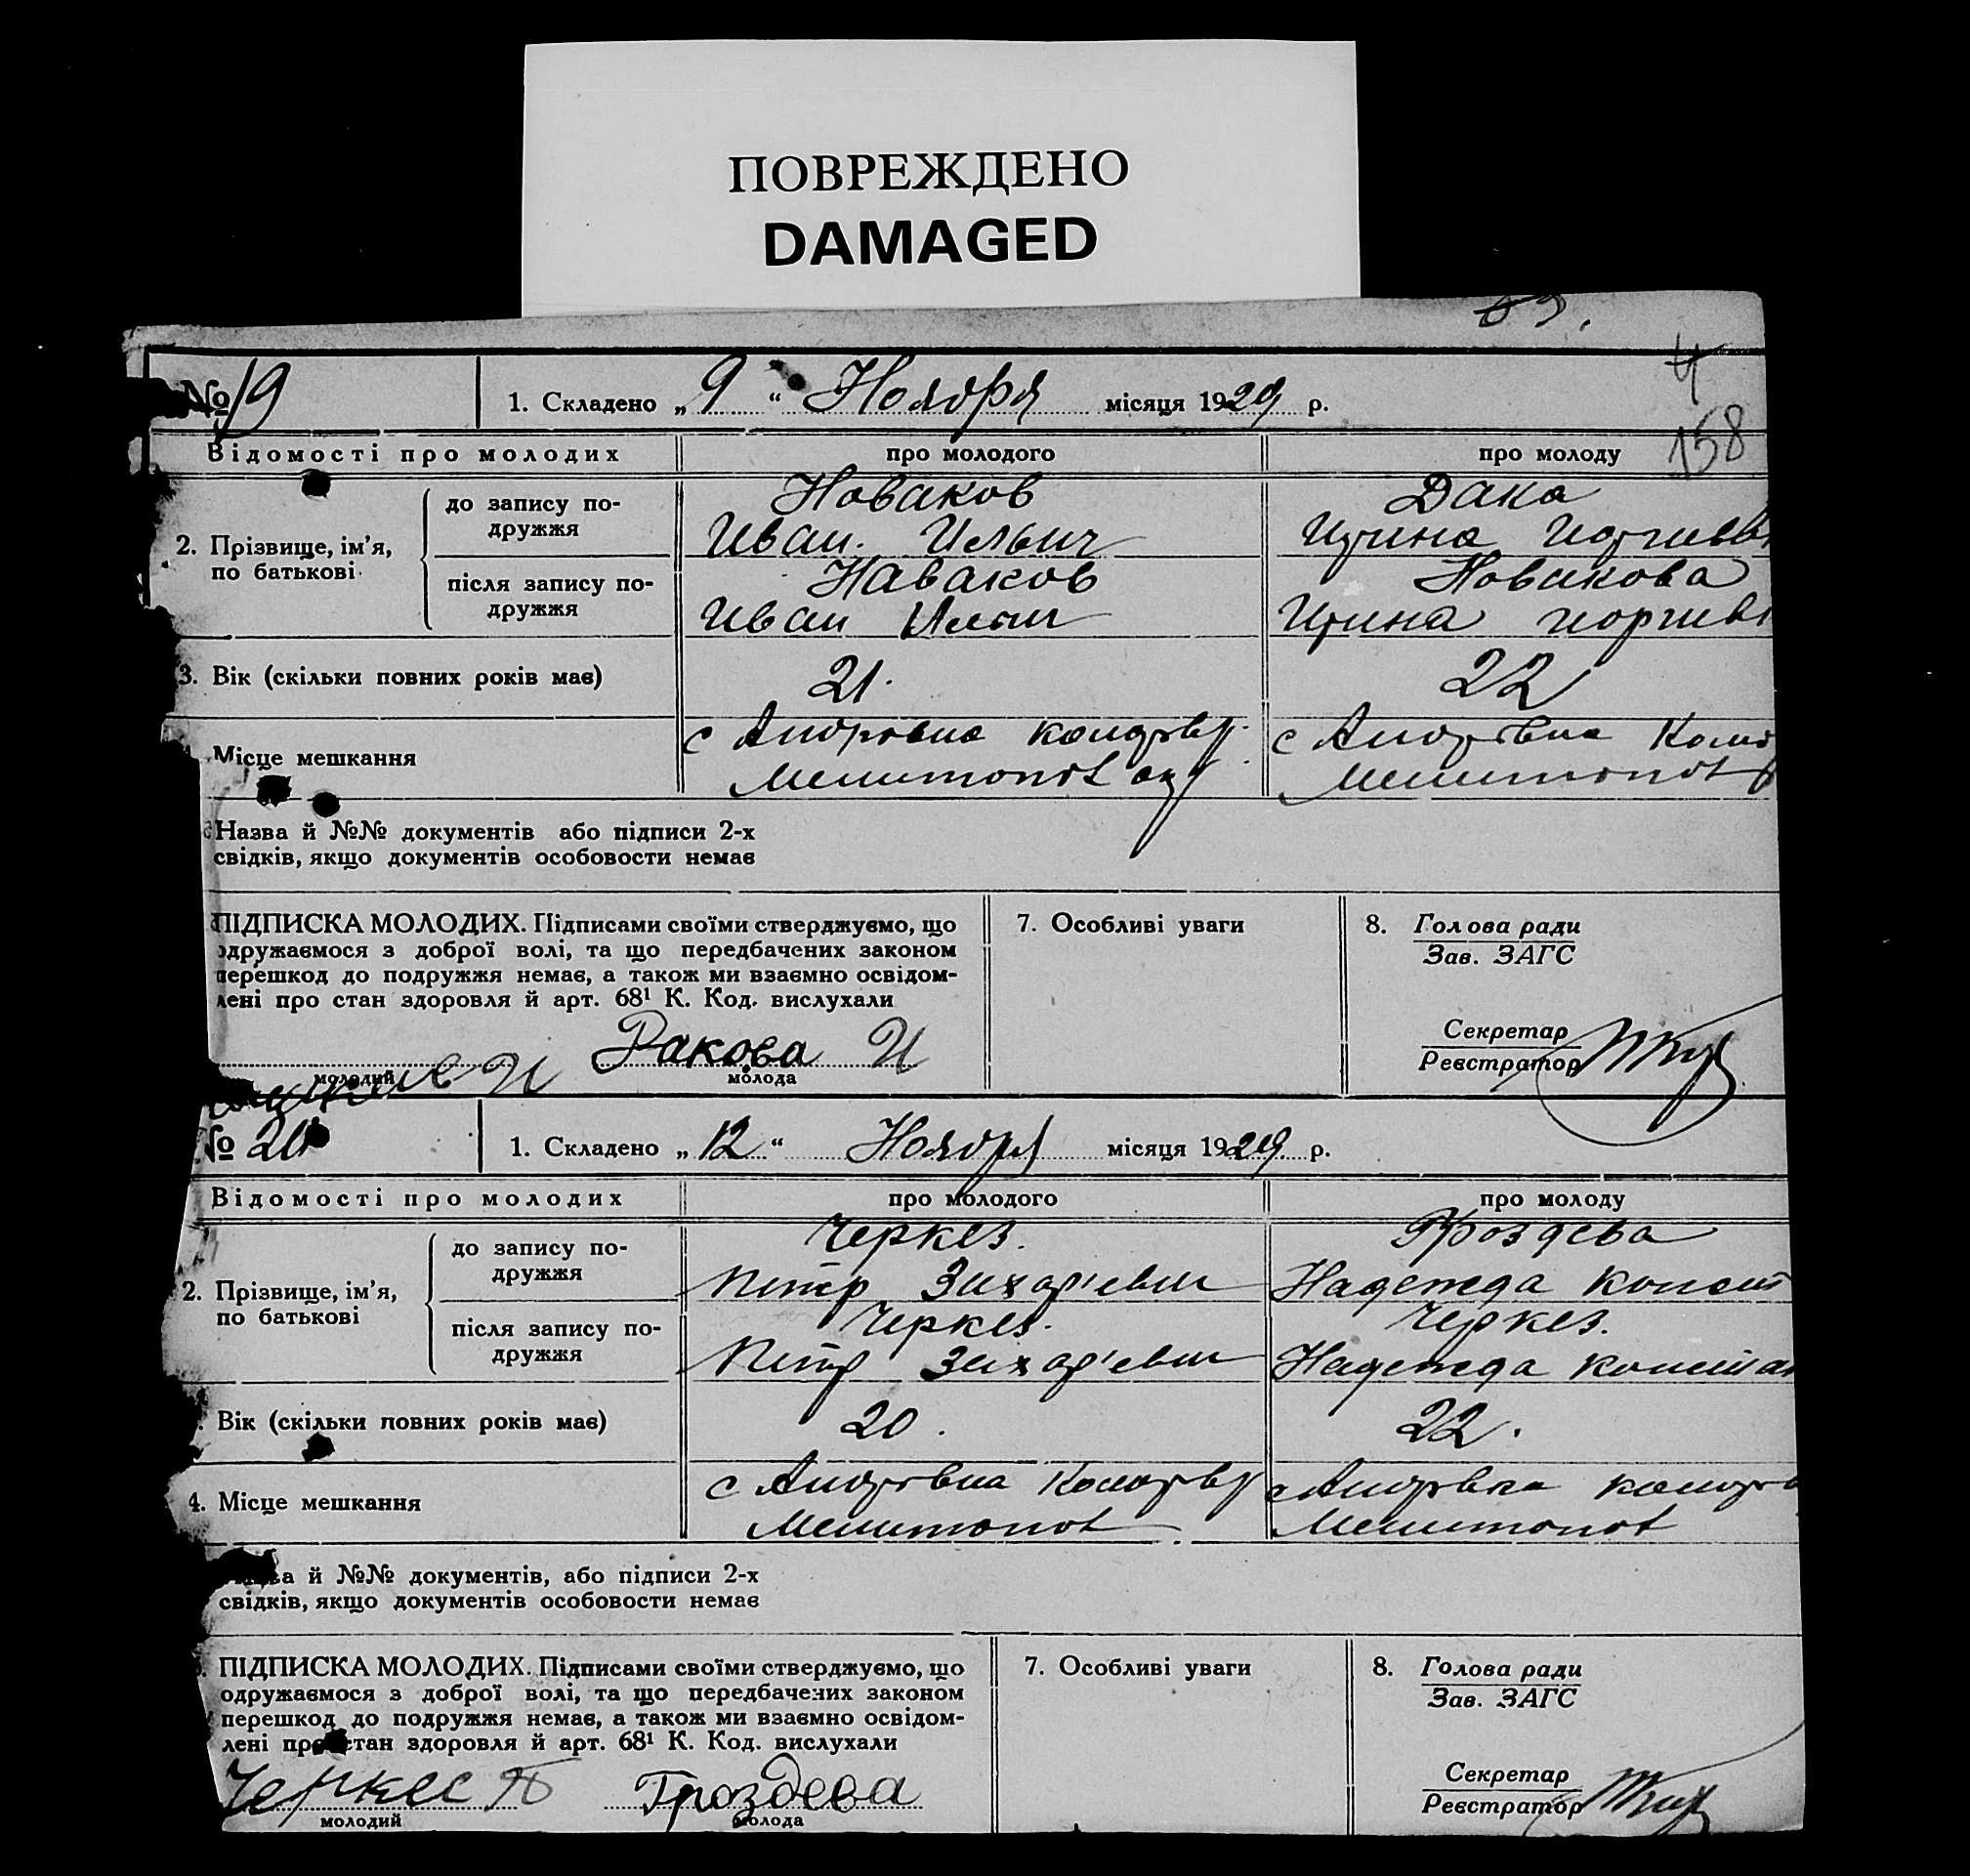 ПОВРЕЖДЕНО
DAMAGED
4
158
№ 19
1. Складено „ 9 “ Ноября місяця 1929 р.
Відомості про молодих
про молодого
про молоду
2. Прізвище, ім’я, по батькові
до запису по-
дружжя
Новаков
Иван Ильич
Дака
Ирина
після запису по-
дружжя
Наваков
Иван Ильич
Новакова
Ирина
3. Вік (скільки повних років має)
21.
22
Місце мешкання
с
с
Назва й №№ документів або підписи 2-х
свідків, якщо документів особовости немає
ПІДПИСКА МОЛОДИХ. Підписами своїми стверджуємо, що
одружаємося з доброї волі, та що передбачених законом
перешкод до подружжя немає, а також ми взаємно освідом-
лені про стан здоровля й арт. 68¹ К. Код. вислухали
И
И
молодий
молода
7. Особливі уваги
8. Голова ради
Зав. ЗАГС
Секретар
Реєстратор
№ 20
1. Складено „ 12 “ Ноября місяця 1929 р.
Відомості про молодих
про молодого
про молоду
2. Прізвище, ім’я,
по батькові
до запису по-
дружжя
Черкез.
Петр Захарʼевич
Гроздева
Надежда Конст
після запису по-
дружжя
Черкез.
Петр Захарʼевич
Черкез.
Надежда Констан
Вік (скільки повних років має)
20.
22.
4. Місце мешкання
с
с
й №№ документів, або підписи 2-х
свідків, якщо документів особовости немає
ПІДПИСКА МОЛОДИХ. Підписами своїми стверджуємо, що
одружаємося з доброї волі, та що передбачених законом
перешкод до подружжя немає, а також ми взаємно освідом-
лені про стан здоровля й арт. 68¹ К. Код. вислухали
Черкес П
Гроздева
молодий
молода
7. Особливі уваги
8. Голова ради
Зав. ЗАГС
Секретар
Реєстратор